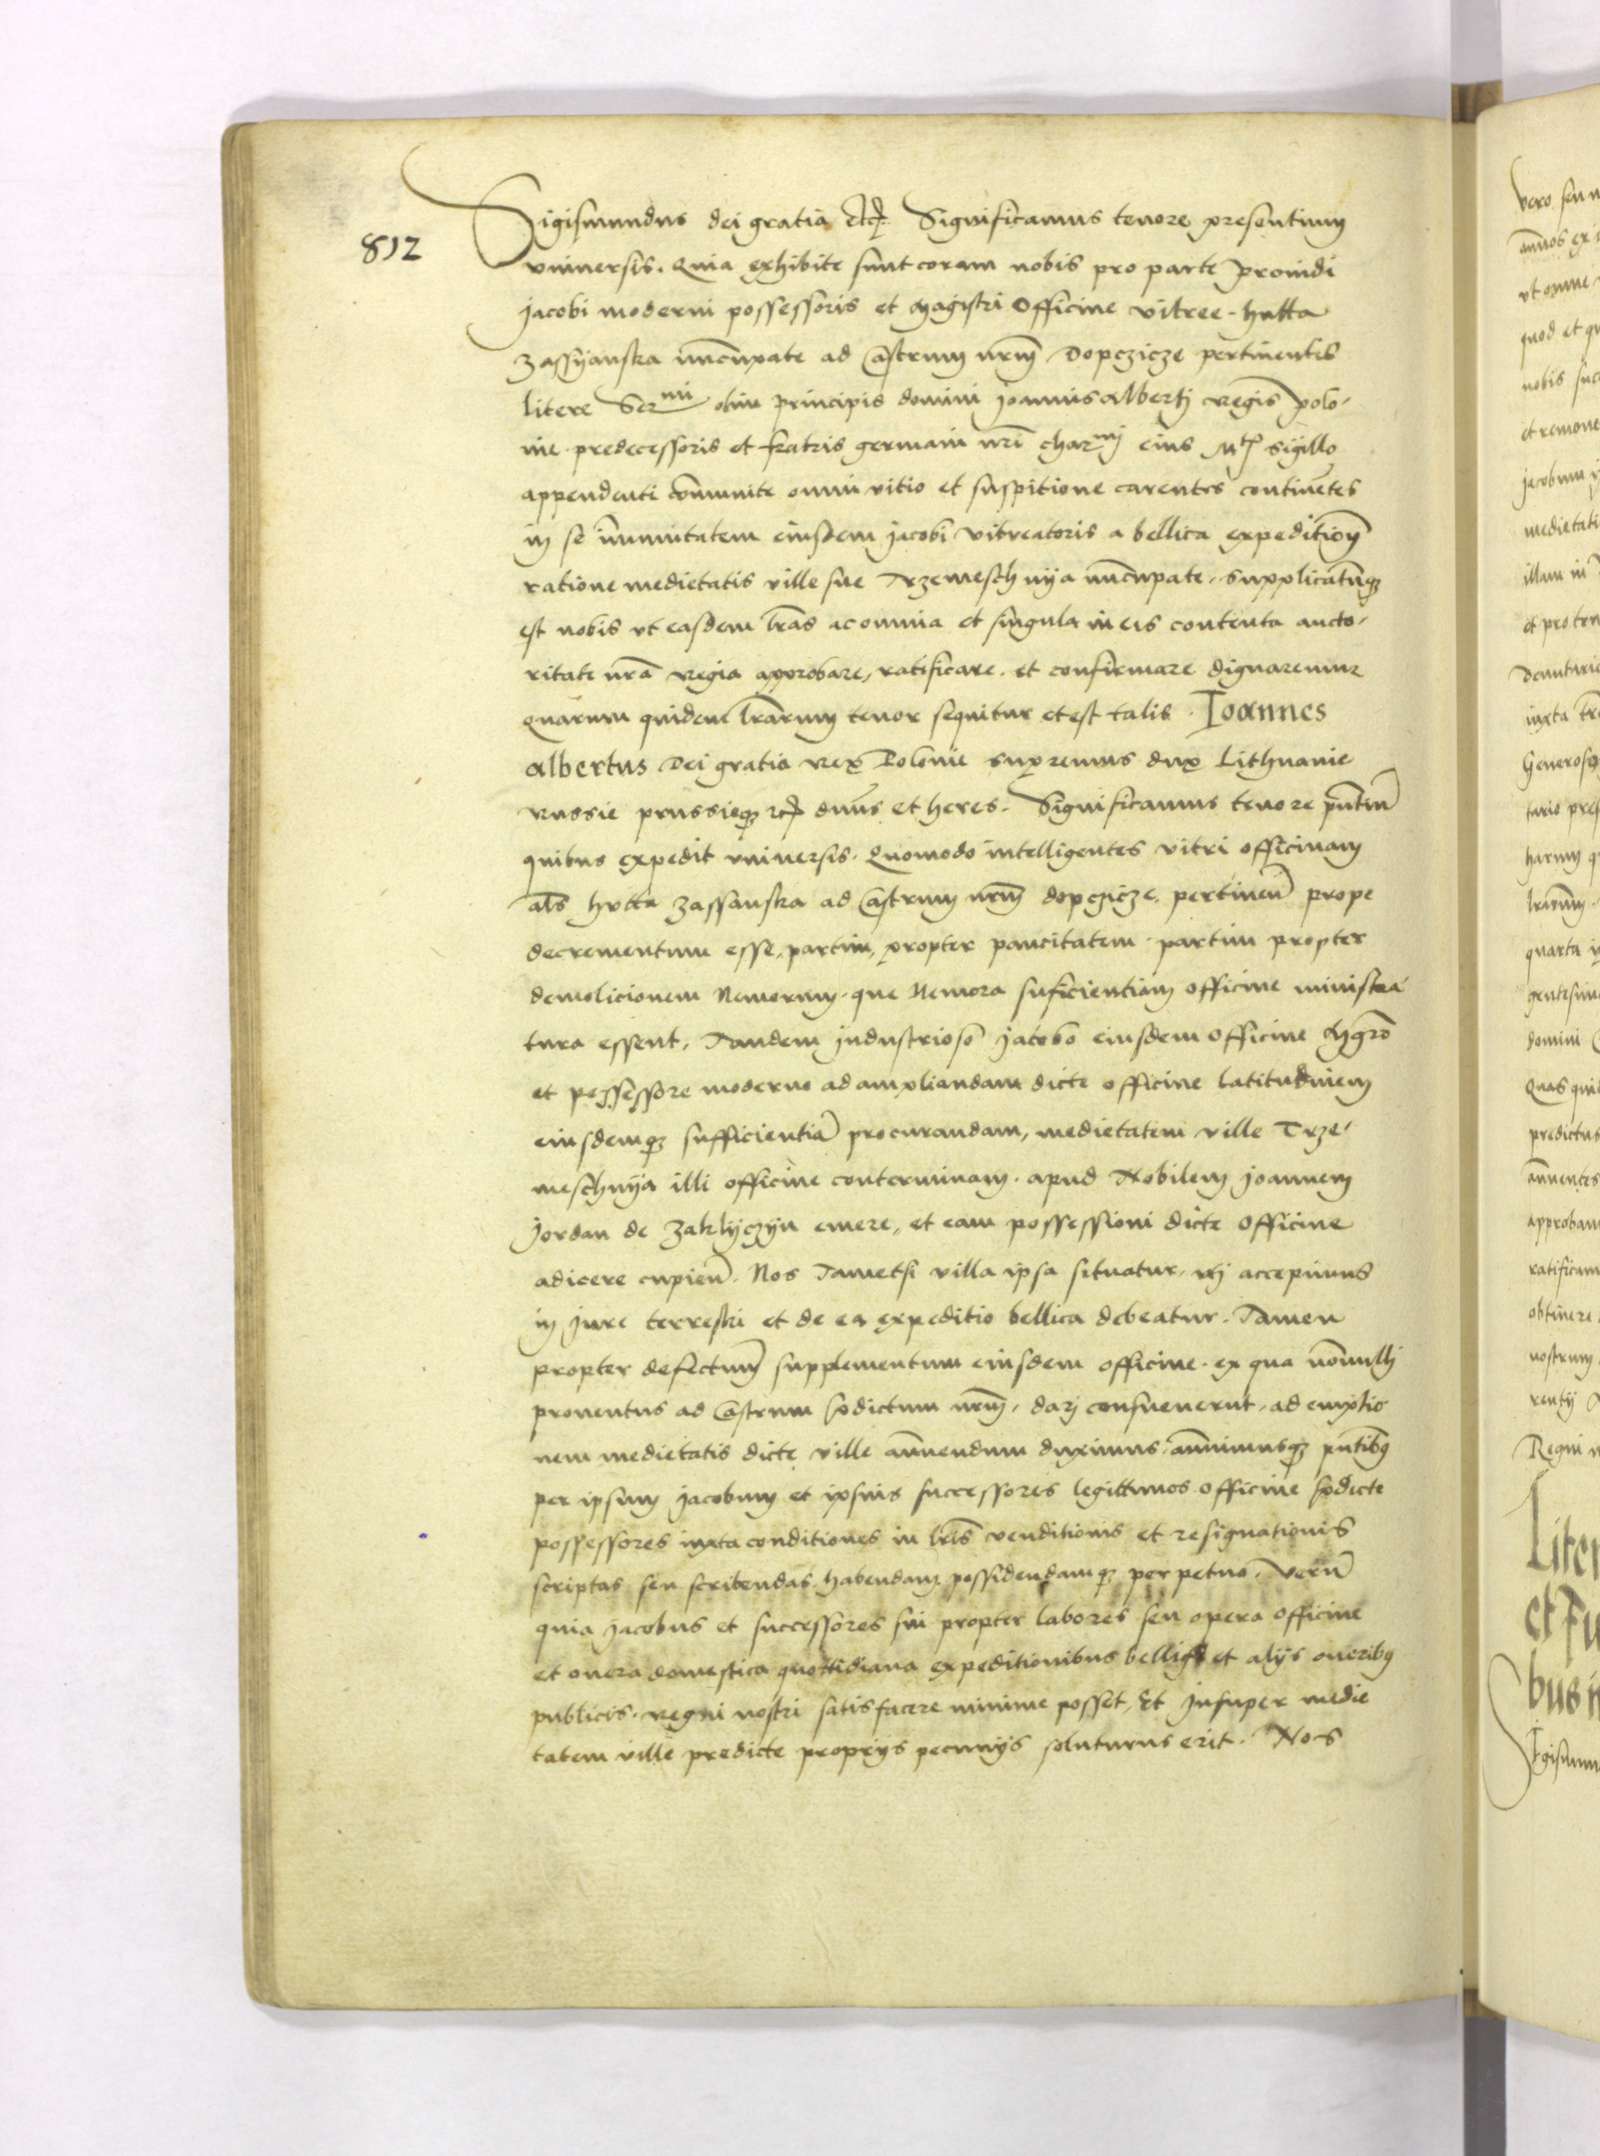 812
Sigismundus dei gratia etc. Significamus tenore presentium
vniuersis. Quia exhibite sunt coram nobis pro parte prouidi
Jacobi moderni possessoris et Magistri Officine vitree. hutta
Zassÿanska nūcupate ad Castrum nrm̄ Dopczicze pertinentis
litere Sermi olim Principis domini Joannis Alberti regis polo-
nie predecessoris et fratris germani nrī charmi eius sigillo
appendenti cōmunite omni vitio et suspitione carentes continētes
in se īmunitatem eiusdem Jacobi vitreatoris a bellica expeditiōe
ratione medietatis ville sue Trzemeschnÿa nūcupate. supplicatūqz
est nobis vt easdem lrās ac omnia et singula in eis contenta aucto-
ritate nrā regia approbare, ratificare. et confirmare dignaremur
Quarum quidem lrārum tenor sequitur et est talis. Ioannes
albertus Dei gratia rex Polonie supremus dux Lithuanie
russie prussieqz etc dn̄us et heres. Significamus tenore pn̄tiū
quibus expedit vniuersis. Quomodo intelligentes vitri officinam
als̄ hutta Zassanska ad Castrum nrm̄ dopczicze pertineñ prope
decrementum esse, partim, propter paucitatem. partim propter
demolicionem Nemorum. que Nemora suficientiam officine ministra-
tura essent, Tandem industrioso Jacobo eiusdem officine Mgrō
et possessore moderno ad ampliandam dicte officine latitudinem
eiusdemqz sufficientiā procurandam, medietatem ville Trze-
meschnÿa illi officine conterminam. apud Nobilem Joannem
Jordan de Zaklÿczÿn emere, et eam possessioni dicte officine
adicere cupieñ. Nos Tametsi villa ipsa situatur, vti accepimus
in Jure terrestri et de ea expeditio bellica debeatur. Tamen
propter defectum supplementum eiusdem officine. ex qua nōnulli
prouentus ad Castrum predictum nrm̄, dari consueuerunt, ad emptio
nem medietatis dicte ville ānuendum duximus. ānuimusqz pn̄tibus
per ipsum Jacobum et ipsius successores legittimos officine predicte
possessores iuxta conditiones in lris̄ venditionis et resignationis
scriptas seu scribendas. habendam possidendamqz perpetuo. Verū
quia Jacobus et successores sui propter labores seu opera officine
et onera domestica quottidiana expeditionibus bellicis et alÿs oneribus
publicis. regni nostri satisfacere minime posset, Et Insuper medie
tatem ville predicte proprÿs pecunÿs soluturus erit. Nos